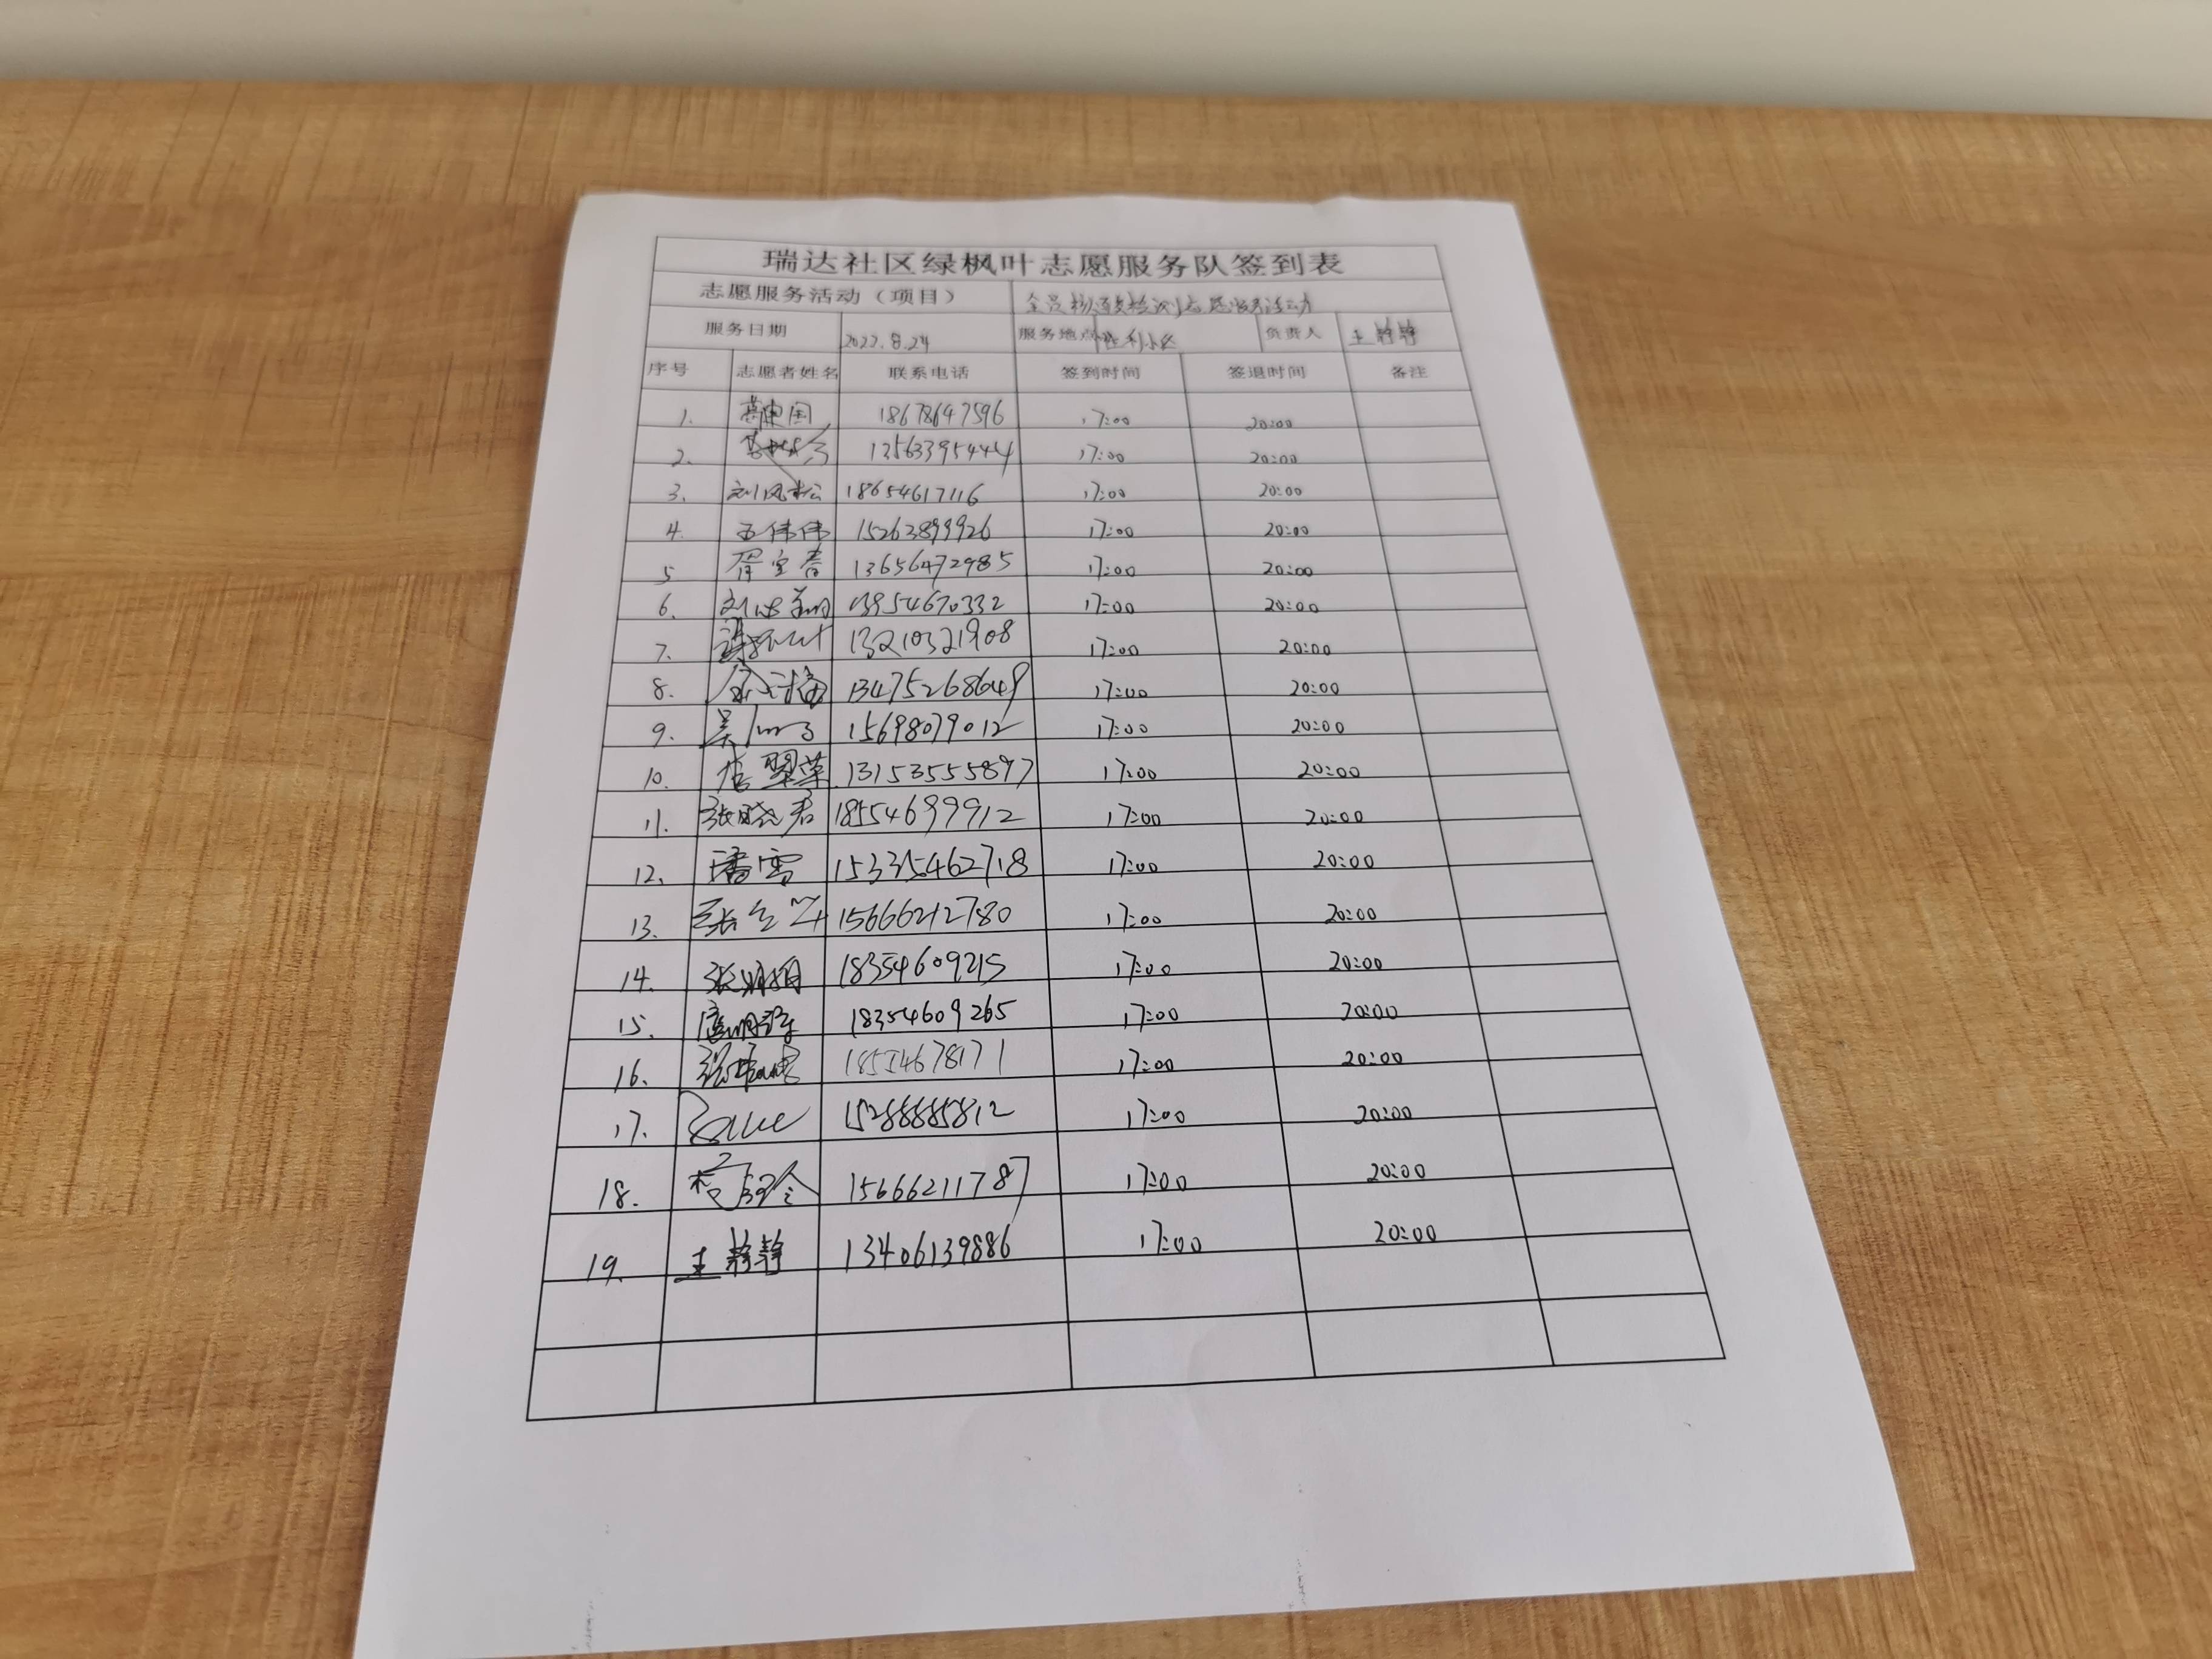 瑞达社区绿枫叶志愿服务队签到表
志愿服务活动（项目） 全员核酸检测志愿服务活动
服务日期 2022.8.24 服务地点 胜利小区 负责人 王静静
序号 志愿者姓名 联系电话 签到时间 签退时间 备注
1. 18678647596 17:00 20:00
2. 13563395444 17:00 20:00
3. 刘风松 18654617116 17:00 20:00
4. 王伟伟 15263899926 17:00 20:00
5 胥宝春 13656472985 17:00 20:00
6. 13954670332 17:00 20:00
7. 13210321908 17:00 20:00
8. 13475268649 17:00 20:00
9. 15698079012 17:00 20:00
10. 13153555897 17:00 20:00
11. 张晓君 18554699912 17:00 20:00
12. 潘雪 15335462718 17:00 20:00
13. 15666212780 17:00 20:00
14. 张娟娟 18354609215 17:00 20:00
15. 18354609265 17:00 20:00
16. 18554678171 17:00 20:00
17. 15288885812 17:00 20:00
18. 15666211787 17:00 20:00
19. 王静静 13406139886 17:00 20:00